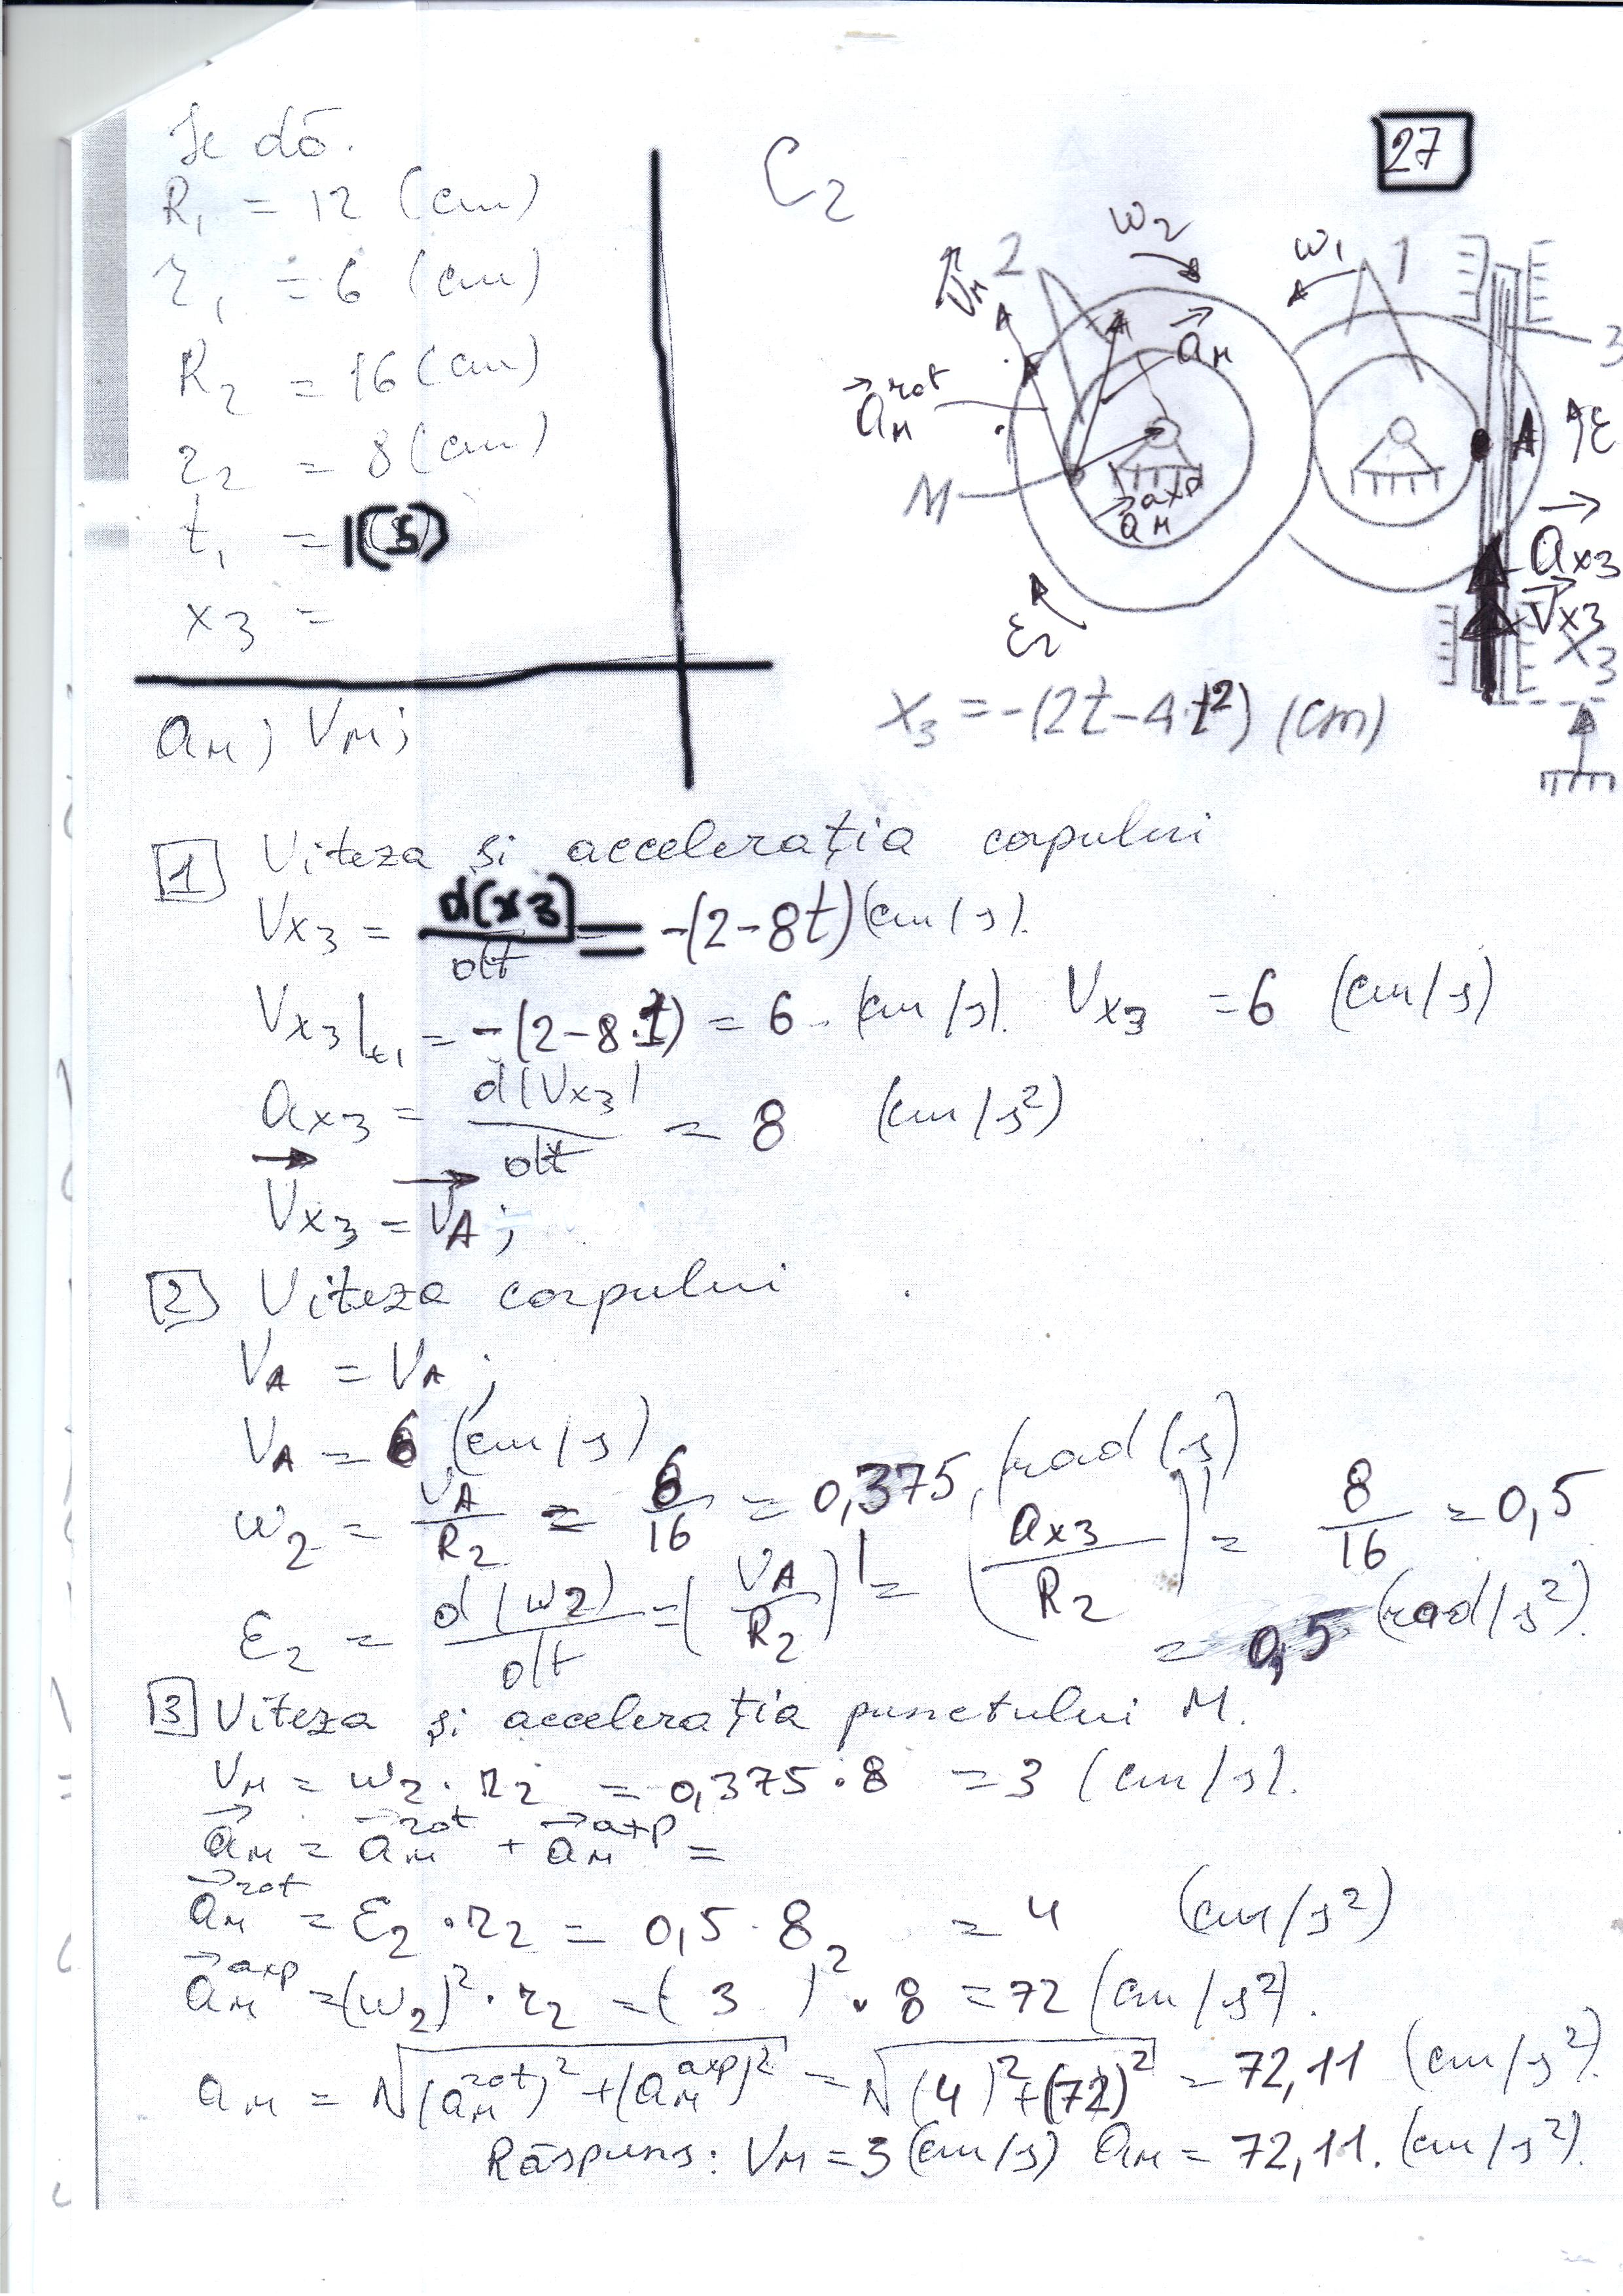 Se dă.
R₁ = 12 (cm)
r₁ = 6 (cm)
R₂ = 16 (cm)
r₂ = 8 (cm)
t₁ = 1(s)
x₃ =
a_M; V_M;
C₂
27
ω₂
ω₁
2
1
3
V⃗_M
a⃗_M
a⃗_M^rot
M
a⃗_M^axp
ε₂
A
ε
a⃗_x3
V⃗_x3
x₃
x₃ = -(2t-4·t²) (cm)
1 Viteza și accelerația corpului
V_x3 = d(x3)/dt = -(2-8t) (cm/s).
V_x3|t₁ = -(2-8·1) = 6 (cm/s). V_x3 = 6 (cm/s)
a_x3 = d(V_x3)/dt = 8 (cm/s²)
V⃗_x3 = V⃗_A;
2 Viteza corpului
V_A = V_A;
V_A = 6 (cm/s)
ω₂ = V_A/R₂ = 6/16 = 0,375 (rad/s)
ε₂ = d(ω₂)/dt = (V_A/R₂)' = (a_x3/R₂)' = 8/16 = 0,5
= 0,5 (rad/s²).
3 Viteza și accelerația punctului M.
V_M = ω₂·r₂ = 0,375·8 = 3 (cm/s).
a⃗_M = a⃗_M^rot + a⃗_M^axp =
a⃗_M^rot = ε₂·r₂ = 0,5·8 = 4 (cm/s²)
a⃗_M^axp = (ω₂)²·r₂ = (3)²·8 = 72 (cm/s²).
a_M = √(a_M^rot)²+(a_M^axp)² = √(4)²+(72)² = 72,11 (cm/s²).
Răspuns: V_M = 3 (cm/s) a_M = 72,11. (cm/s²).